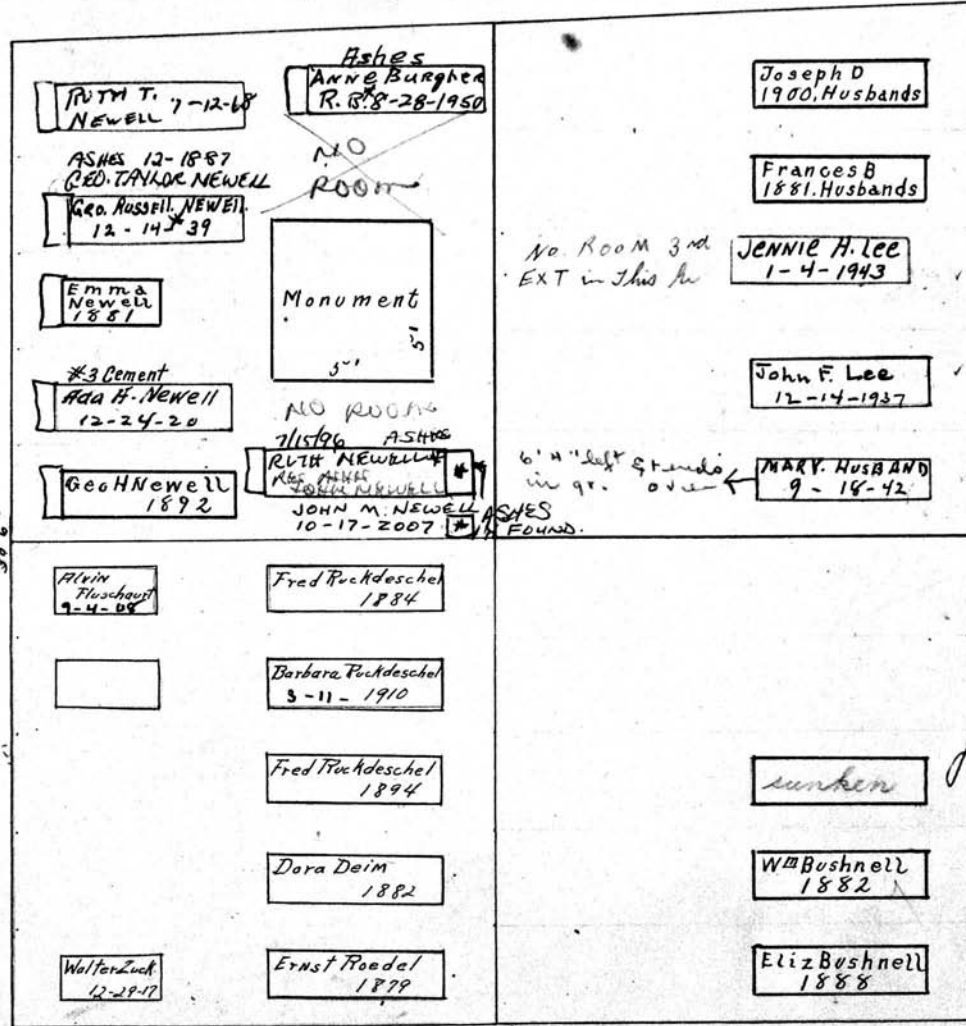 RUTH T. 7-12-68
NEWELL
ASHES 12-1887
GEO. TAYLOR NEWELL
GEO. RUSSELL. NEWELL.
12-14-39
Emma
Newell
1881
#3 Cement
Ada H. Newell
12-24-20
Geo H Newell
1892
Ashes
ANNE Burgher
R. B. 8-28-1950
NO
ROOM
Monument
5'
5'
NO ROOM
7/15/96 ASHES
RUTH NEWELL
JOHN NEWELL
JOHN M. NEWELL ASHES
10-17-2007 FOUND.
Joseph D
1900. Husbands
Frances B
1881. Husbands
No. ROOM 3rd
EXT in This
JENNIE H. Lee
1-4-1943
John F. Lee
12-14-1937
left
in gr. over
MARY. HUSBAND
9-18-42
Alvin
9-4-08
Walter Zuck.
12-29-17
Fred Ruckdeschel
1884
Barbara Ruckdeschel
3-11-1910
Fred Ruckdeschel
1894
Dora Deim
1882
Ernst Roedel
1879
sunken
Wm Bushnell
1882
Eliz Bushnell
1888